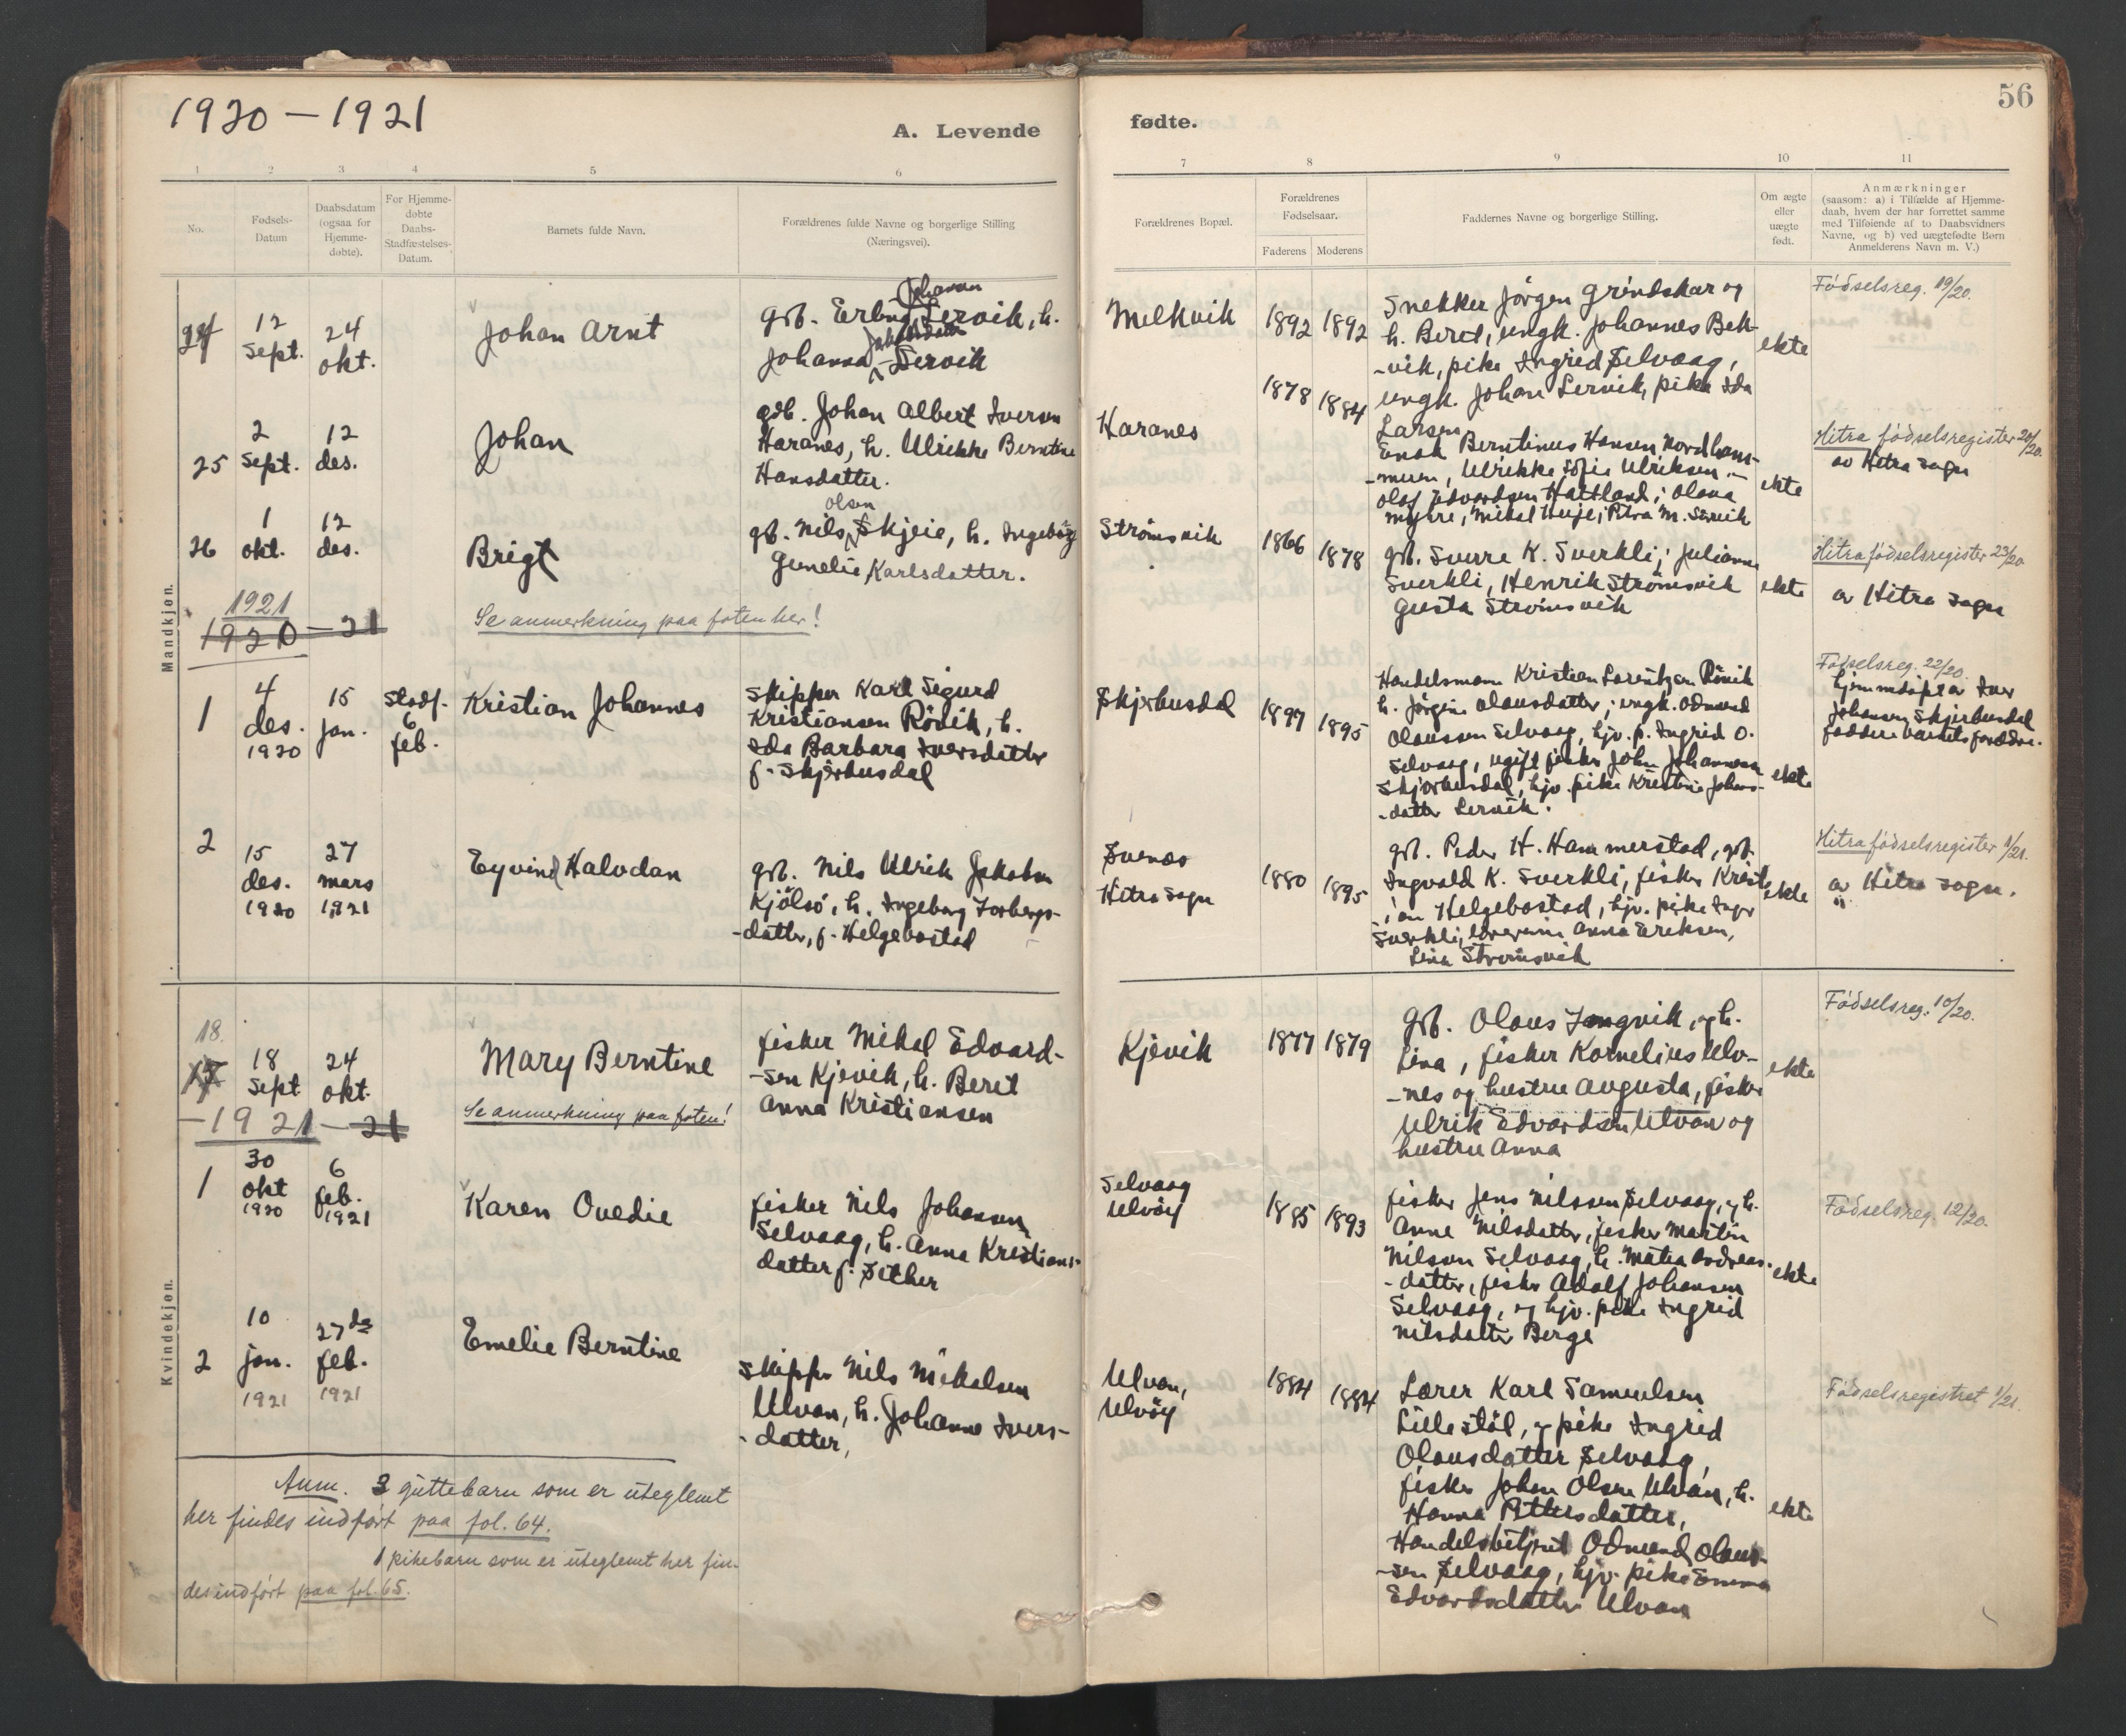 1920 – 1921
A. Levende
fødte.
56
1 2 3 4 5 6 7 8 9 10 11
No.
Fødsels-
Datum
Daabsdatum
(ogsaa for
Hjemme-
døbte).
For Hjemme-
døbte
Daabs-
Stadfæstelses-
Datum.
Barnets fulde Navn.
Forældrenes fulde Navne og borgerlige Stilling
(Næringsvei).
Forældrenes Bopæl.
Forældrenes
Fødselsaar.
Faderens Moderens
Faddernes Navne og borgerlige Stilling.
Om ægte
eller
uægte
født.
Anmærkninger
(saasom: a) i Tilfælde af Hjemme-
daab, hvem der har forrettet samme
med Tilføiende af to Daabsvidners
Navne, og b) ved uægtefødte Børn
Anmelderens Navn m. V.)
Mandkjøn.
24
12
Sept.
24
okt.
Johan Arnt
Johansen
grb. Erling Lervik, h.
Johanna Lervik
Melkvik
1892 1892
Snekker Jørgen Grindskar og
h. Beret, ungk. Johannes Bek-
-vik, pike Ingrid Selvaag,
ungk. Johan Lervik, pike Ida
Larsen
ekte
Fødselsreg. 19/20.
25
2
Sept.
12
des.
Johan
gdb. Johan Albert Iversen
Haranes, h. Ulrikke Berntine
Hansdatter.
Haranes
1878 1884
Enok Berntinus Hansen Nordham-
-mern, Ulrikke Sofie Ulriksen,
Olaf Edvardsen Hattland; Olava
Myhre, Mikal Heije; Petra M. Servik
ekte
Hitra fødselsregister 20/20.
av Hitra sogn
26
1
okt.
12
des.
Brigt
Olsen
gb. Nils Skjeie, h. Ingebørg
Gunelie Karlsdatter.
Strømsvik
1866 1878
grb. Sverre K. Sverkli; Julianne
Sverkli, Henrik Strømsvik
Gusta Strømsvik
ekte
Hitra fødselsregister 23/20
av Hitra sogn
1921
1920 – 21
Se anmerkning paa foten her!
1
4
des.
1920
15
jan.
Stadf.
6
feb.
Kristian Johannes
Skipper Karl Sigurd
Kristiansen Røvik, h.
Ida Barbara Iversdatter
f. Skjærbusdal
Skjærbusdal
1897 1895
Handelsmann Kristian Lorentzen Røvik
h. Jørgine Olausdatter; ungk. Odmund
Olaussen Selvaag, hjv. p. Ingrid O.
Selvaag, ugift fisker John Johannesen
Skjærbusdal, hjv. pike Kristine Johans-
-datter Lervik.
ekte
Fødselsreg. 22/20.
hjemmedøpt av Iver
Johansen Skjærbusdal
faddere barnets forældre.
2
15
des.
1920
27
mars
1921
Eyvind Halvdan
grb. Nils Ulrik Jakobsen
Kjølsø, h. Ingeborg Torbergs-
-datter, f. Helgebostad
Svenes
Hitra sogn
1880 1895
grb. Peder H. Hammerstad, grb.
Ingvald K. Sverkli, fisker Krist-
-ian Helgebostad, hjv. pike Inger
Sverkli, lærerinne Anna Eriksen,
Lina Strømsvik
ekte
Hitra fødselsregister 1/21.
av Hitra sogn.
Kvindekjøn.
18.
17
18
Sept
24
okt.
Mary Berntine
fisker Mikal Edvard-
-sen Kjevik, h. Beret
Anna Kristiansen
Kjevik
1877 1879
grb. Olaus Tangvik, og h.
Lina, fisker Kornelius Ulv-
-nes og hustru Augusta, fisker
Ulrik Edvardsen Ulvan og
hustru Anna
ekte
Fødselsreg. 10/20.
– 1921 – 21
Se anmerkning paa foten!
1
30
okt
1920
6
feb.
1921
Karen Ovedie
fisker Nils Johansen
Selvaag, h. Anna Kristians-
datter f. Sæther
Selvaag
Ulvöy
1885 1893
fisker Jens Nilssen Selvaag, og h.
Anne Nilsdatter, fisker Martin
Nilsen Selvaag, h. Matea Andreas-
-datter, fisker Adolf Johansen
Selvaag, og hjv. pike Ingrid
Nilsdatter Berge
ekte
Fødselsreg. 12/20.
2
10
jan.
1921
27de
feb.
1921
Emelie Berntine
Skipper Nils Mikalsen
Ulvan, h. Johanne Ivers-
-datter,
Ulvan,
Ulvöy
1884 1884
Lærer Karl Samuelsen
Lillestøl, og pike Ingrid
Olausdatter Selvaag,
fisker Johan Olsen Ulvan, h.
Hanna Pettersdatter,
Handelsbetjent Odmund Olaus-
-sen Selvaag, hjv. pike Emma
Edvardsdatter Ulvan
ekte
Fødselsregistret 1/21.
Anm. 3 guttebarn som er uteglemt
her findes indført paa fol. 64.
1 pikebarn som er uteglemt her fin-
des indført paa fol. 65.